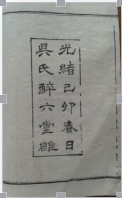 光緒己卯春日
吳氏醉六堂雕